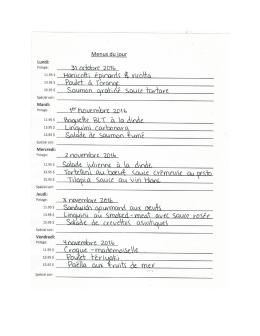 Menus du jour
Lundi:
Potage: 31 octobre 2016
11.95 $ Manicotti épinards & ricotta
13.95 $ Poulet à l'orange
15.95 $ Saumon gratiné sauce tartare
Spécial soir:
Mardi:
Potage: 1er novembre 2016
11.95 $ Baguette BLT à la dinde
13.95 $ Linguini carbonara
15.95 $ Salade de saumon fumé
Spécial soir:
Mercredi:
Potage: 2 novembre 2016
11.95 $ Salade julienne à la dinde
13.95 $ Tortellini au boeuf sauce crèmeuse au pesto
15.95 $ Tilapia sauce au vin blanc
Spécial soir:
Jeudi:
Potage: 3 novembre 2016
11.95 $ Sandwich gourmand aux oeufs
13.95 $ Linguini au smoked-meat avec sauce rosée
15.95 $ Salade de crevettes asiatiques
Spécial soir:
Vendredi:
Potage: 4 novembre 2016
11.95 $ Croque-mademoiselle
13.95 $ Poulet teriyaki
15.95 $ Paëlla aux fruits de mer
Spécial soir: